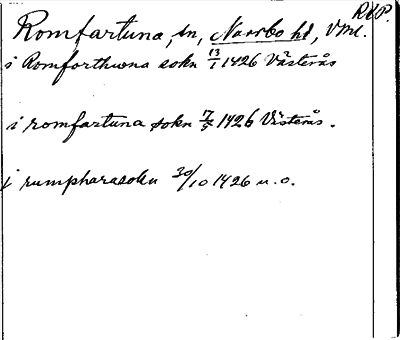 RUP.
Romfartuna, sn, Norrbo hd, Vml.
i Romforthuna sokn 13/1 1426 Västerås
i romfartuna sokn 17/5 1426 Västerås.
i rumpharasokn 30/10 1426 u.o.